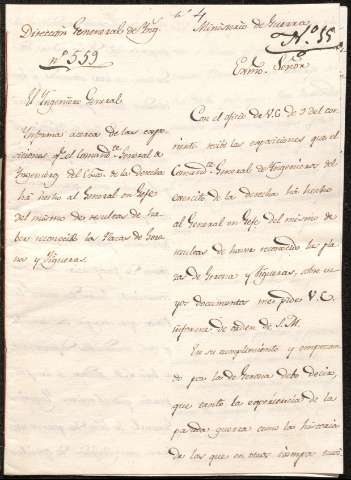 nº 4
Dirección General del Yng.
nº 559
Ministerio de Guerra
Nº 15
Exmo. Señor
El Yngeniero General
Informa acerca de las expo-
siciones qe. el Comandte. General de
Yngenieros del Exto. de la derecha
há hecho al General en Gefe
del mismo de resultas de ha-
ber reconocido las Plazas de Gero-
na y Figueras.
Con el oficio de V.E. de 9 del cor-
riente recibí las exposiciones que el
Comandte. General de Yngenieros del
exercito de la derecha há hecho
al General en Gefe del mismo de
resultas de haver reconocido la pla-
za de Gerona y Figueras, sobre cu-
yos documentos me pide V.E.
informe de orden de S.M.
En su cumplimiento y empezan-
do por la de Gerona debo decir,
que tanto la experiencia de la
pasada guerra como las historias
de las que en otros tiempos tuvi-